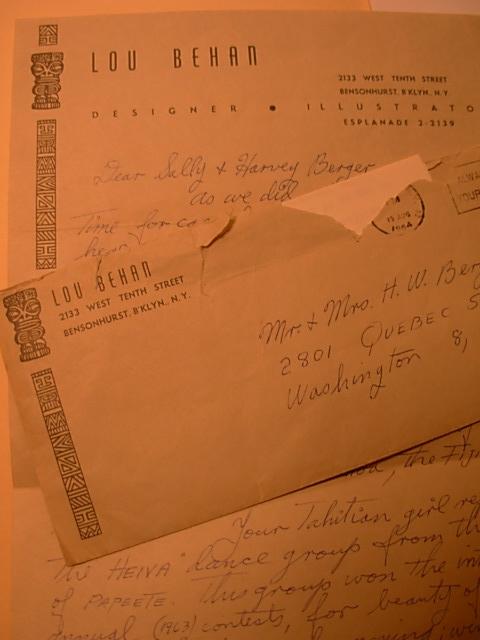 LOU BEHAN
2133 WEST TENTH STREET
BENSONHURST, B'KLYN, N.Y.
DESIGNER • ILLUSTRATO
ESPLANADE 2-2139
Dear Sally & Harvey Berger
as we did
Time for
hear
15 AUG
1964
ALWA
YOUR
LOU BEHAN
2133 WEST TENTH STREET
BENSONHURST, B'KLYN, N.Y.
Mr. & Mrs. H. W. Ber
2801 QUEBEC S
Washington 8,
, the Fiji
Your Tahitian girl re
The HEIVA dance group from th
of PAPEETE. This group won the in
annual (1963) contests, for beauty of